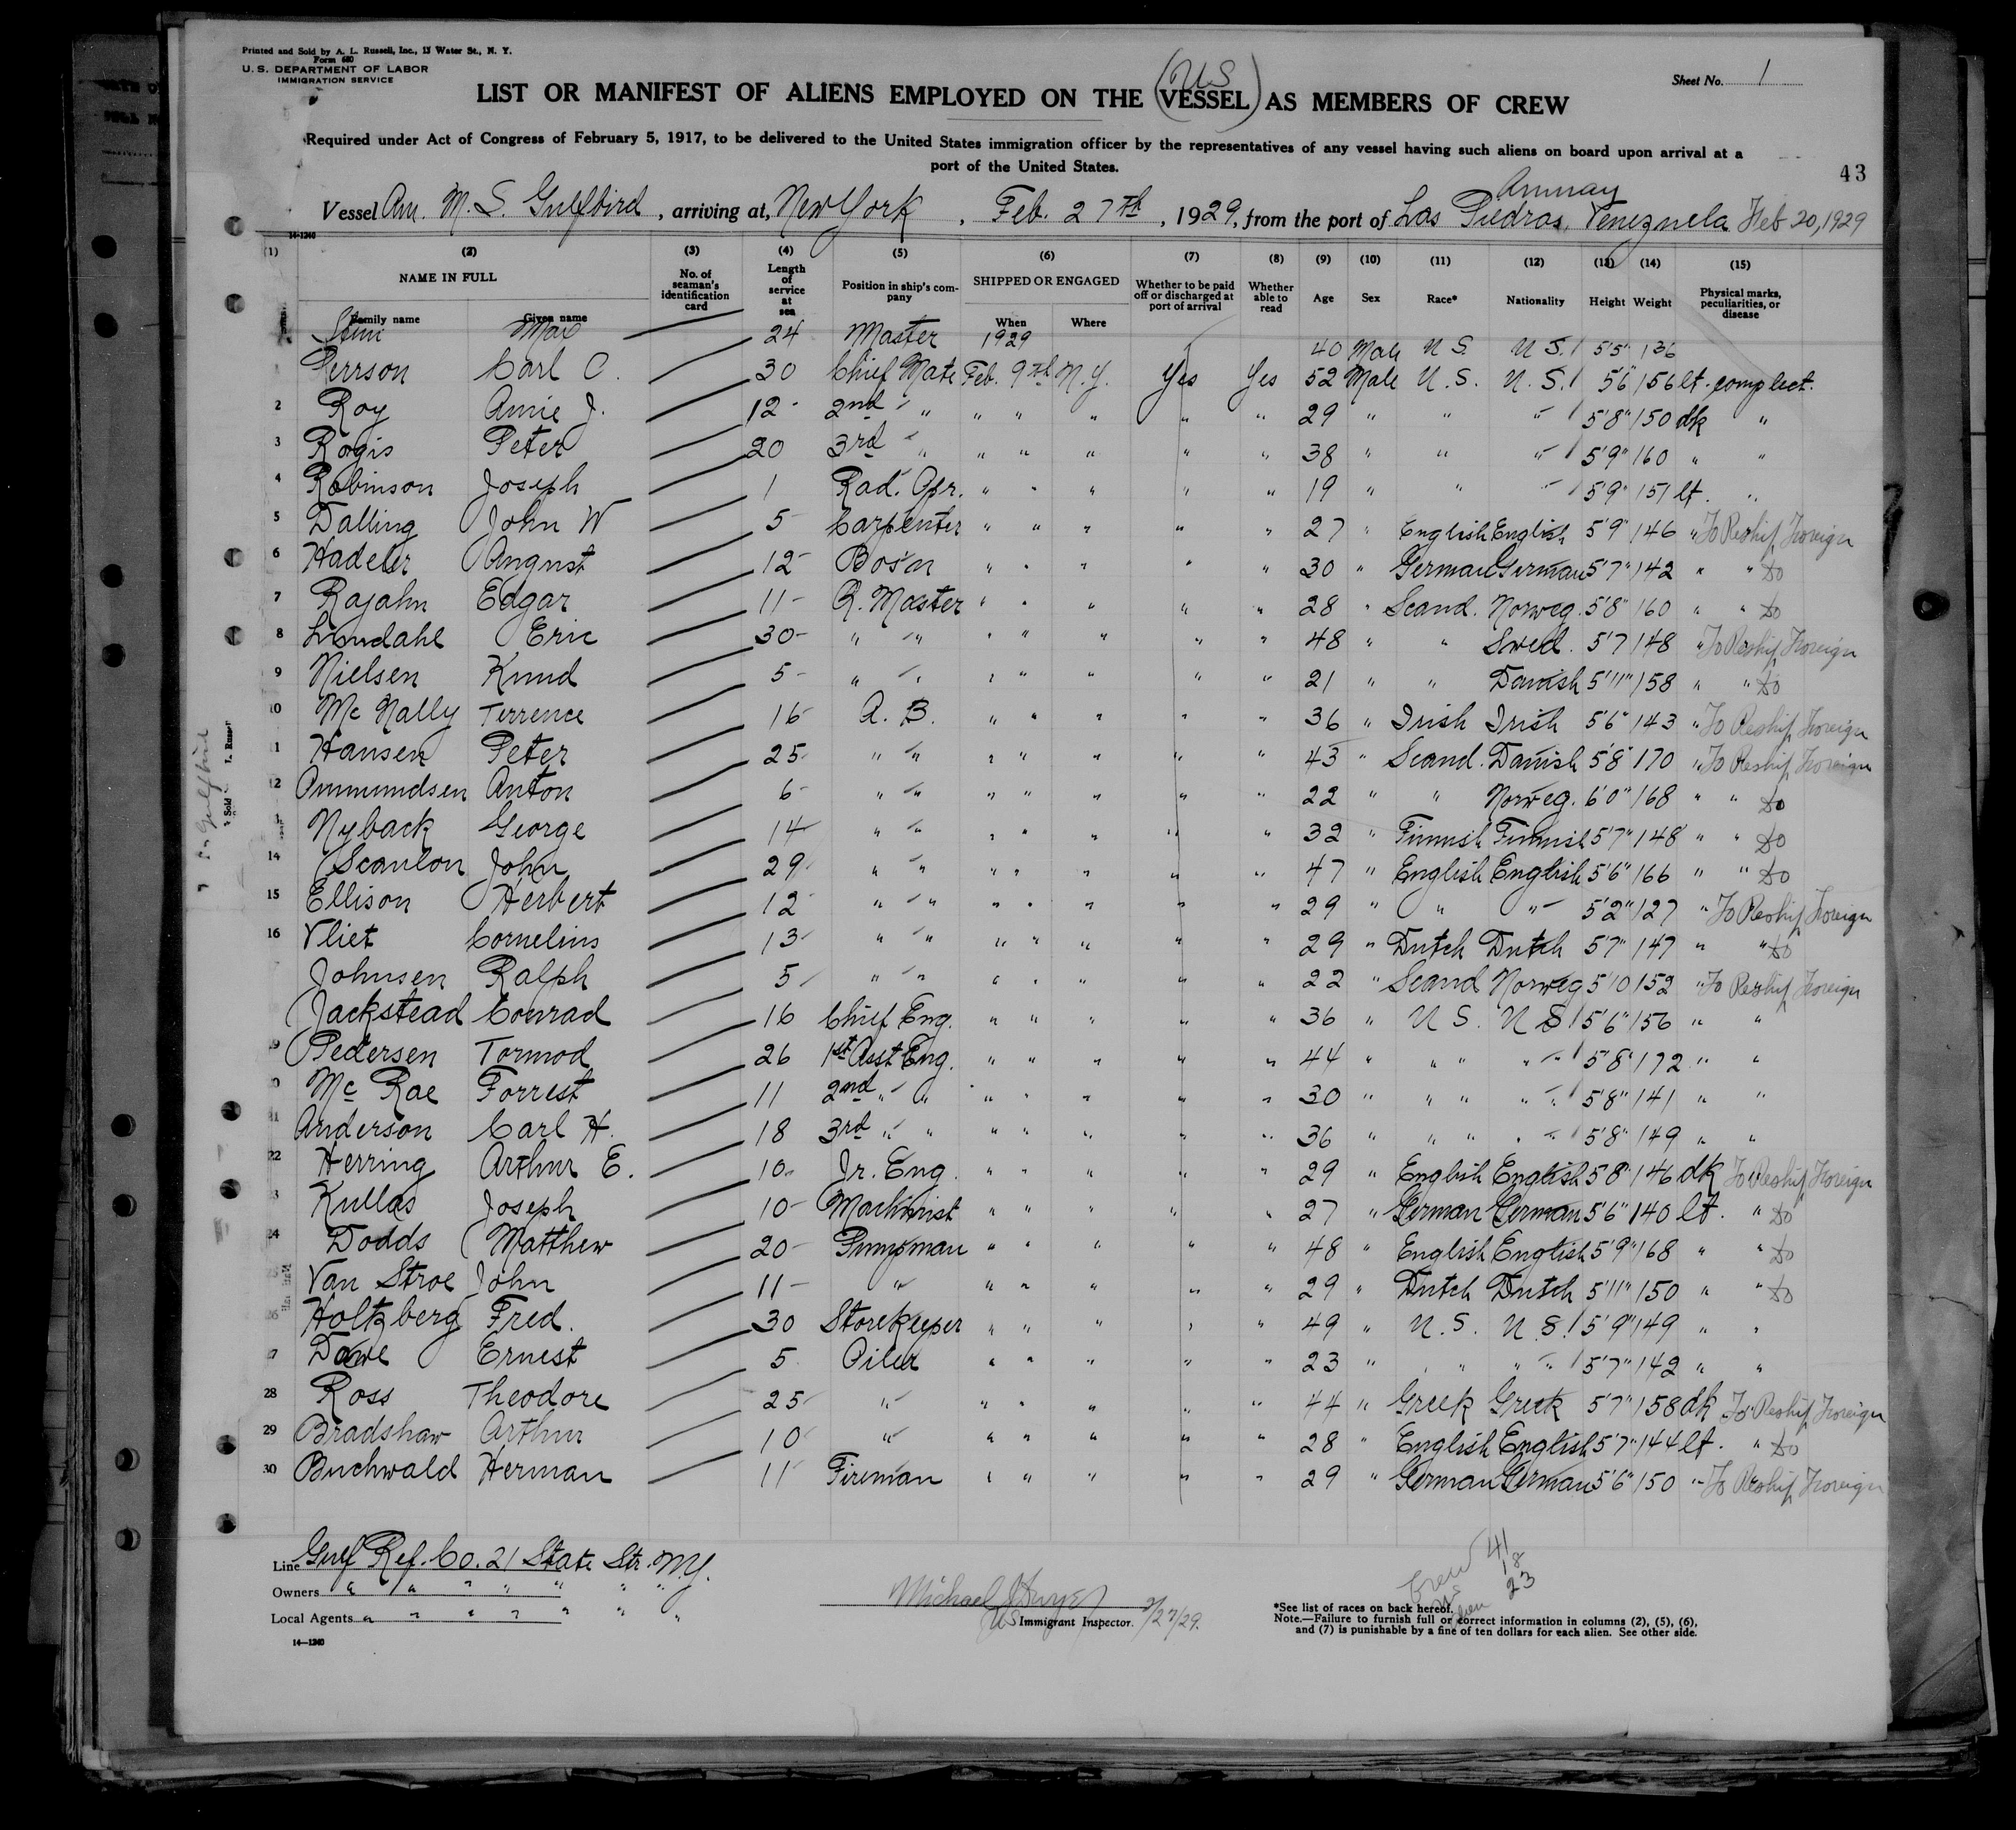 Printed and Sold by A. L. Russell, Inc., 13 Water St., N. Y.
Form 680
U. S. DEPARTMENT OF LABOR
IMMIGRATION SERVICE
Sheet No. 1
(US)
LIST OR MANIFEST OF ALIENS EMPLOYED ON THE VESSEL AS MEMBERS OF CREW
Required under Act of Congress of February 5, 1917, to be delivered to the United States immigration officer by the representatives of any vessel having such aliens on board upon arrival at a
port of the United States.
43
Vessel Am. M. S. Gulfbird, arriving at, New York, Feb. 27th, 1929, from the port of Las Piedras, Venezuela Feb 20, 1929
14-1240
(1) (2) (3) (4) (5) (6) (7) (8) (9) (10) (11) (12) (13) (14) (15)
NAME IN FULL No. of seaman's identification card Length of service at sea Position in ship's company SHIPPED OR ENGAGED Whether to be paid off or discharged at port of arrival Whether able to read Age Sex Race* Nationality Height Weight Physical marks, peculiarities, or disease
Family name Given name When Where
Max 24 Master 1929 40 Male U S. U S. 5'5" 136
Perrson Carl O. 30 Chief Mate Feb. 9th N.Y. Yes Yes 52 Male U. S. U. S. 5'6" 156 lt. complect.
2 Roy Amie J. 12 2nd " " " " " " 29 " " " 5'8" 150 dk "
3 Rogis Peter 20 3rd " " " " " " 38 " " " 5'9" 160 " "
4 Robinson Joseph 1 Rad. Opr. " " " " " 19 " " " 5'9" 151 lt. "
5 Dalling John W 5 Carpenter " " " " " 27 " English English 5'9" 146 " To Reship Foreign
6 Hadeler August 12 Bos'n " " " " " 30 " German German 5'7" 142 " " do
7 Rajahn Edgar 11 Q. Master " " " " " 28 " Scand. Norweg. 5'8" 160 " " do
8 Lundahl Eric 30 " " " " " " " 48 " " Swed. 5'7 148 " To Reship Foreign
9 Nielsen Knud 5 " " " " " " " 21 " " Danish 5'11" 158 " " do
10 Mc Nally Terrence 16 A. B. " " " " " 36 " Irish Irish 5'6" 143 " To Reship Foreign
11 Hansen Peter 25 " " " " " " " 43 " Scand. Danish 5'8" 170 " To Reship Foreign
12 Ammundsen Anton 6 " " " " " " " 22 " " Norweg. 6'0" 168 " " do
Nyback George 14 " " " " " " " 32 " Finnish Finnish 5'7" 148 " " do
14 Scanlon John 29 " " " " " " " 47 " English English 5'6" 166 " " do
15 Ellison Herbert 12 " " " " " " " 29 " " " 5'2" 127 " To Reship Foreign
16 Vliet Cornelius 13 " " " " " " " 29 " Dutch Dutch 5'7" 147 " " do
Johnsen Ralph 5 " " " " " " " 22 " Scand Norweg 5'10 152 " To Reship Foreign
Jackstead Conrad 16 Chief Eng. " " " " " 36 " U S. U S 5'6" 156 " "
9 Pedersen Tormod 26 1st Asst Eng. " " " " " 44 " " " " " 5'8" 172 " "
0 Mc Rae Forrest 11 2nd " " " " " " " 30 " " " " " 5'8" 141 " "
21 Anderson Carl H. 18 3rd " " " " " " " 36 " " " " " 5'8" 149 " "
22 Herring Arthur E. 10 Jr. Eng. " " " " " 29 " English English 5'8" 146 dk To Reship Foreign
3 Kullas Joseph 10 Machinist " " " " " 27 " German German 5'6" 140 lt. " do
24 Dodds Matthew 20 Pumpman " " " " " 48 " English English 5'9" 168 " " do
25 Van Stroe John 11 " " " " " " 29 " Dutch Dutch 5'11" 150 " " do
26 Holtzberg Fred. 30 Storekeeper " " " " " 49 " U. S. U. S. 5'9" 149 " "
7 Dowe Ernest 5 Oiler " " " " " 23 " " " " " 5'7" 142 " "
28 Ross Theodore 25 " " " " " " 44 " Greek Greek 5'7" 158 dk To Reship Foreign
29 Bradshaw Arthur 10 " " " " " " 28 " English English 5'7" 144 lt. " do
30 Buchwald Herman 11 Fireman " " " " " 29 " German German 5'6" 150 " To Reship Foreign
Line Gulf Ref. Co. 21 State Str. N.Y.
Owners " " " " " " "
Local Agents " " " " " " "
14—1240
Michael J Dwyer
US Immigrant Inspector. 2/27/29.
Crew 41
US 18
Alien 23
*See list of races on back hereof.
Note.—Failure to furnish full or correct information in columns (2), (5), (6),
and (7) is punishable by a fine of ten dollars for each alien. See other side.